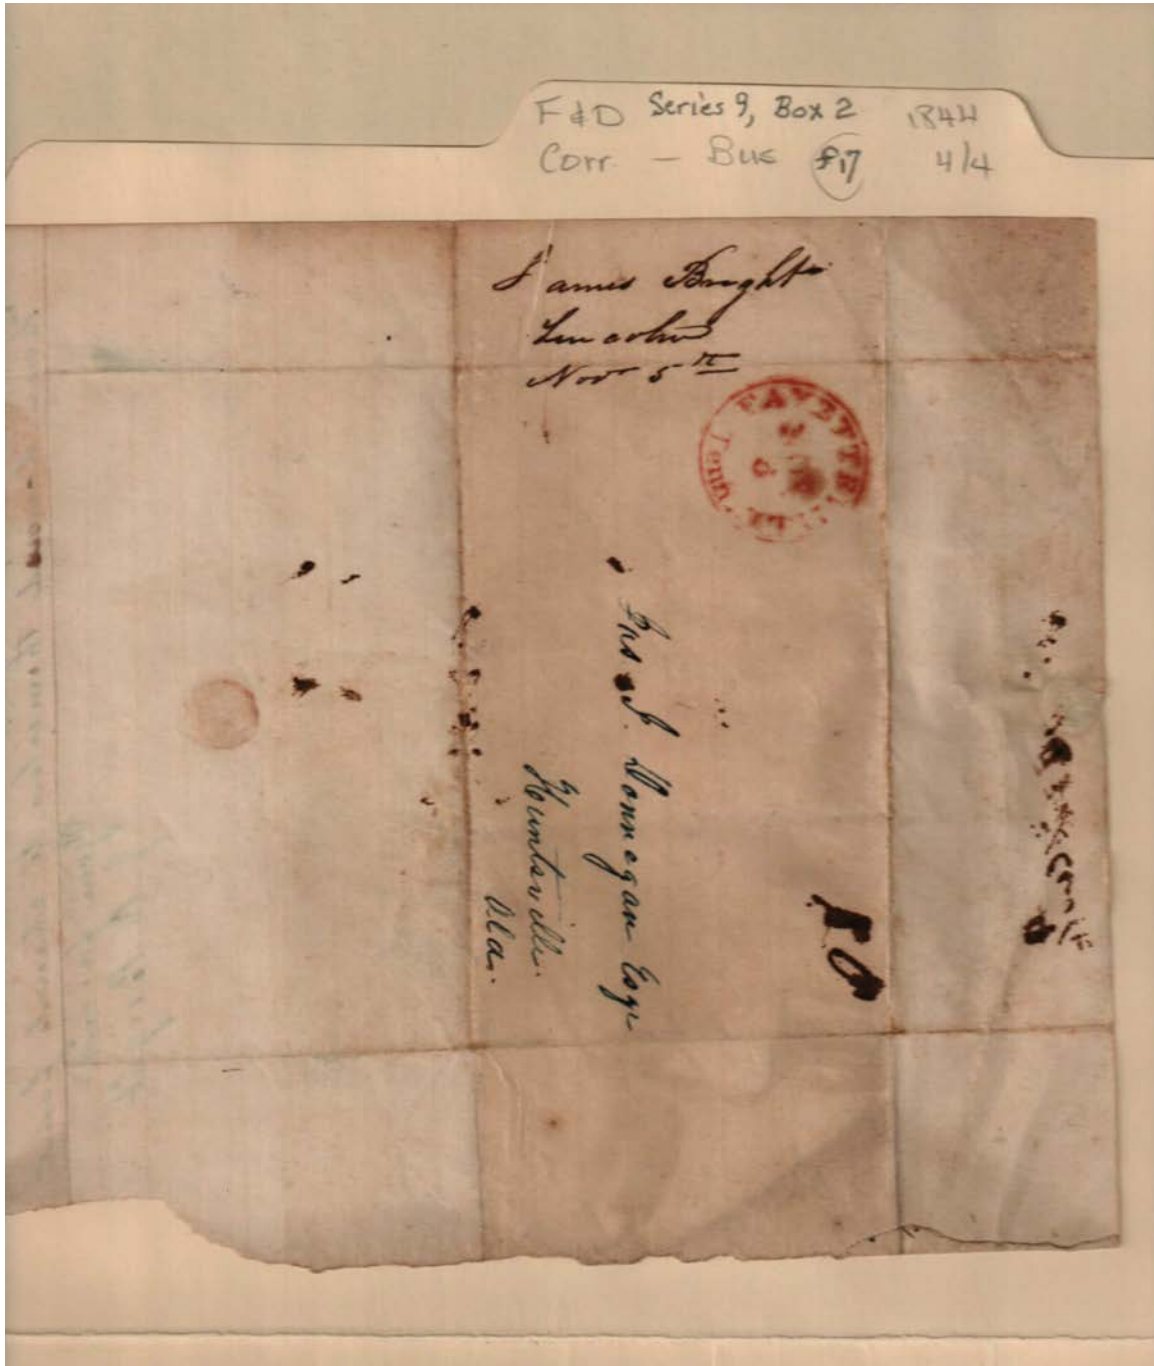 F&D Series 9, Box 2 1844
Corr. — Bus f17 4/4
James Bright
Lincoln
Novr 5th
FAYETTEVILLE
NOV
6
Tenn.
Jas. J. Donnegan Esqr
Huntsville.
Ala.
10